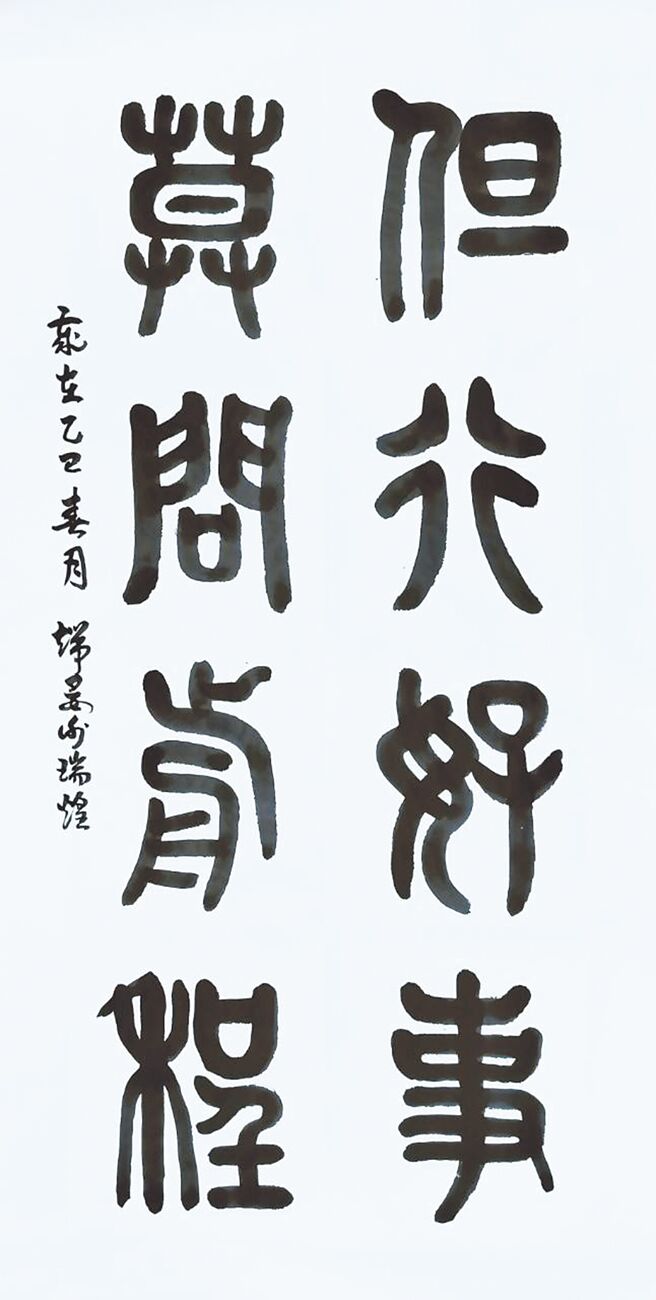 但行好事
莫問前程
歲在乙巳春月 瑞煌